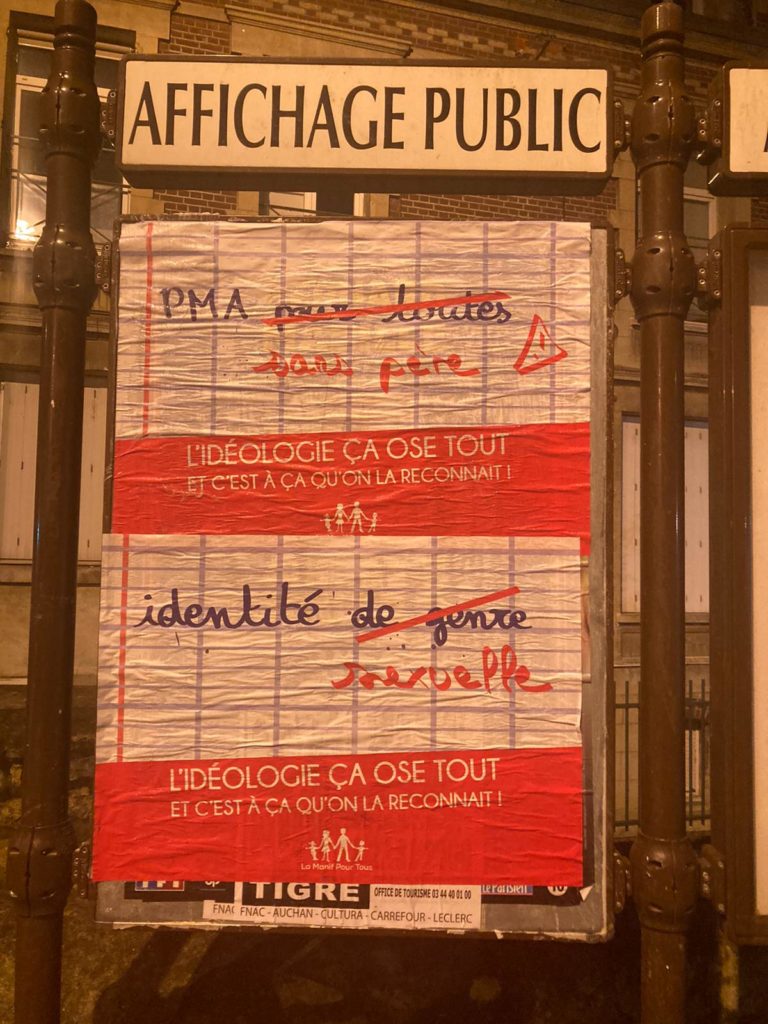 AFFICHAGE PUBLIC
PMA pour toutes
sans père
L'IDÉOLOGIE ÇA OSE TOUT
ET C'EST À ÇA QU'ON LA RECONNAIT !
identité de genre
sexuelle
L'IDÉOLOGIE ÇA OSE TOUT
ET C'EST À ÇA QU'ON LA RECONNAIT !
La Manif Pour Tous
TIGRE
OFFICE DE TOURISME 03 44 40 01 00
Le Parisien
FNAC FNAC - AUCHAN - CULTURA - CARREFOUR - LECLERC